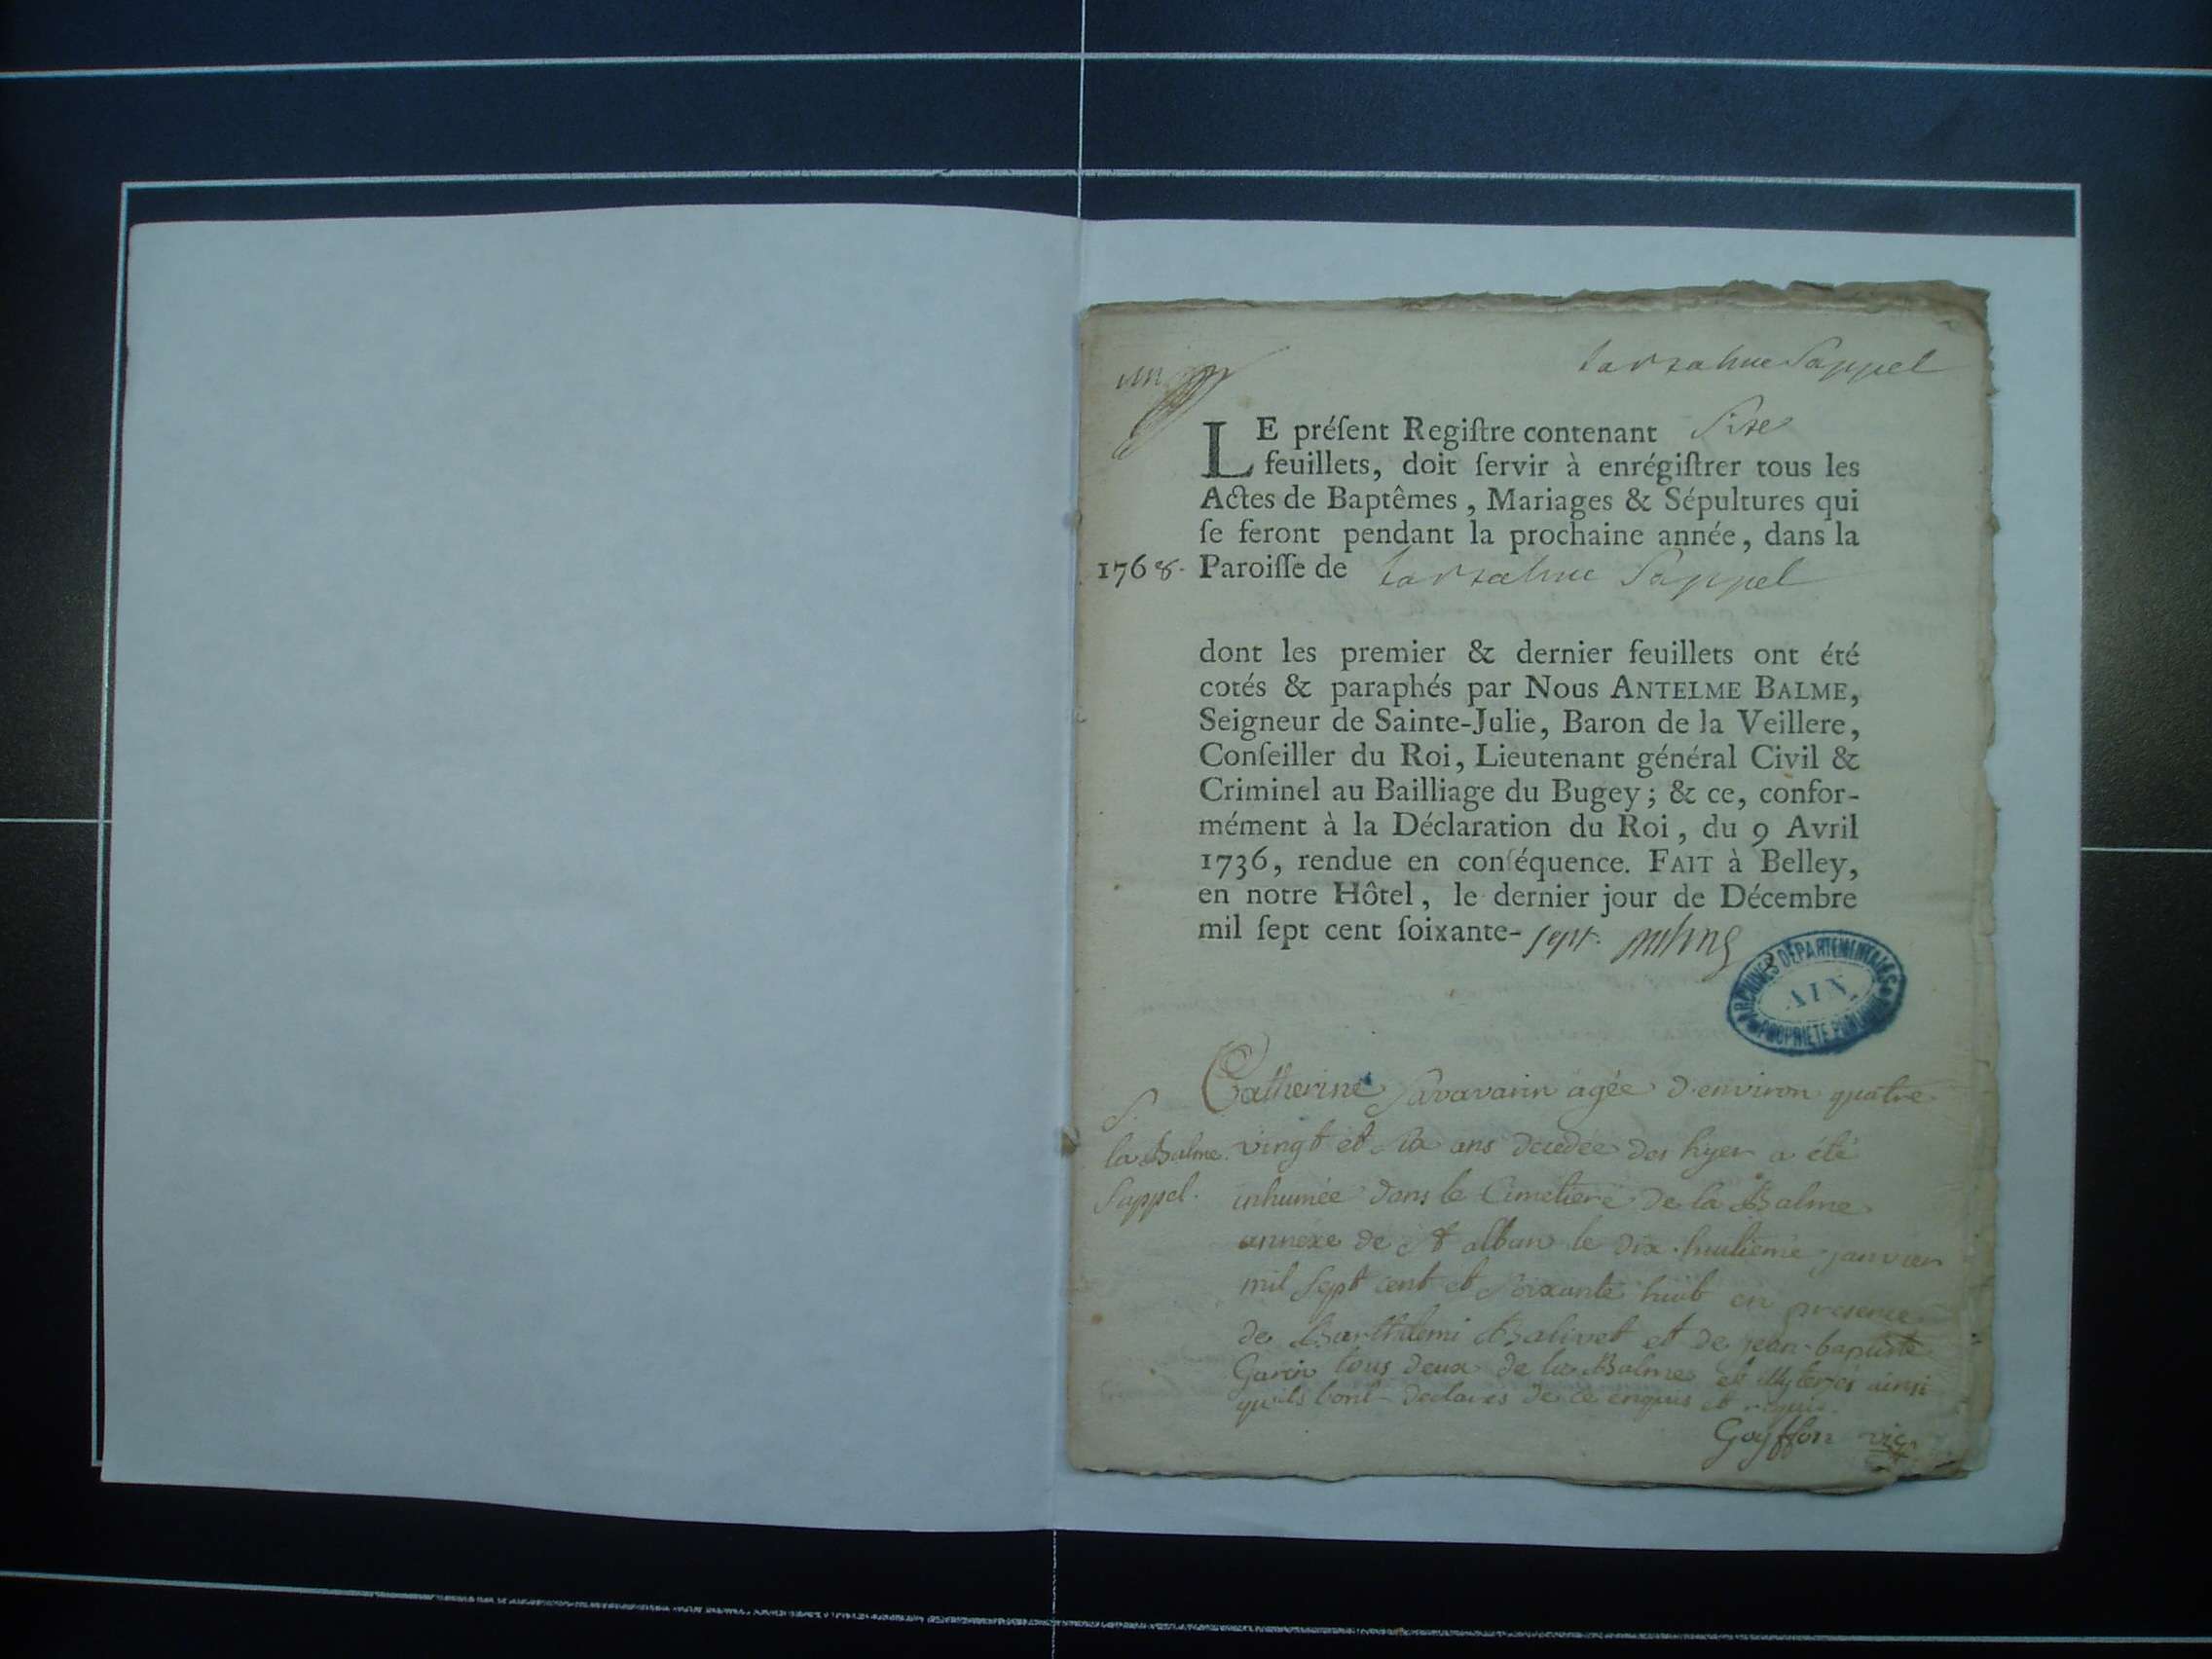 un
Sappel
LE préſent Regiſtre contenant Six
feuillets, doit ſervir à enrégiſtrer tous les
Actes de Baptêmes, Mariages & Sépultures qui
ſe feront pendant la prochaine année, dans la
1768. Paroiſſe de Sappel
dont les premier & dernier feuillets ont été
cotés & paraphés par Nous ANTELME BALME,
Seigneur de Sainte-Julie, Baron de la Veillere,
Conſeiller du Roi, Lieutenant général Civil &
Criminel au Bailliage du Bugey; & ce, confor-
mément à la Déclaration du Roi, du 9 Avril
1736, rendue en conſéquence. FAIT à Belley,
en notre Hôtel, le dernier jour de Décembre
mil ſept cent ſoixante-sept.
ARCHIVES DÉPARTEMENTALES
AIN
PROPRIÉTÉ PUBLIQUE
S.
la Balme
Sappel.
Catherine Savavarin agée d'environ quatre
vingt et six ans decedée des hyer a été
inhumée dans le Cimetiere de la Balme
annéxe de St alban le dix-huitieme janvier
mil Sept cent et Soixante huit en presence
de Barthelemi Balivet et de jean-baptiste
Garin tous deux de la Balme et illyterés ainsi
qu'ils l'ont declarés de ce enquis et requis
Goyffon vic